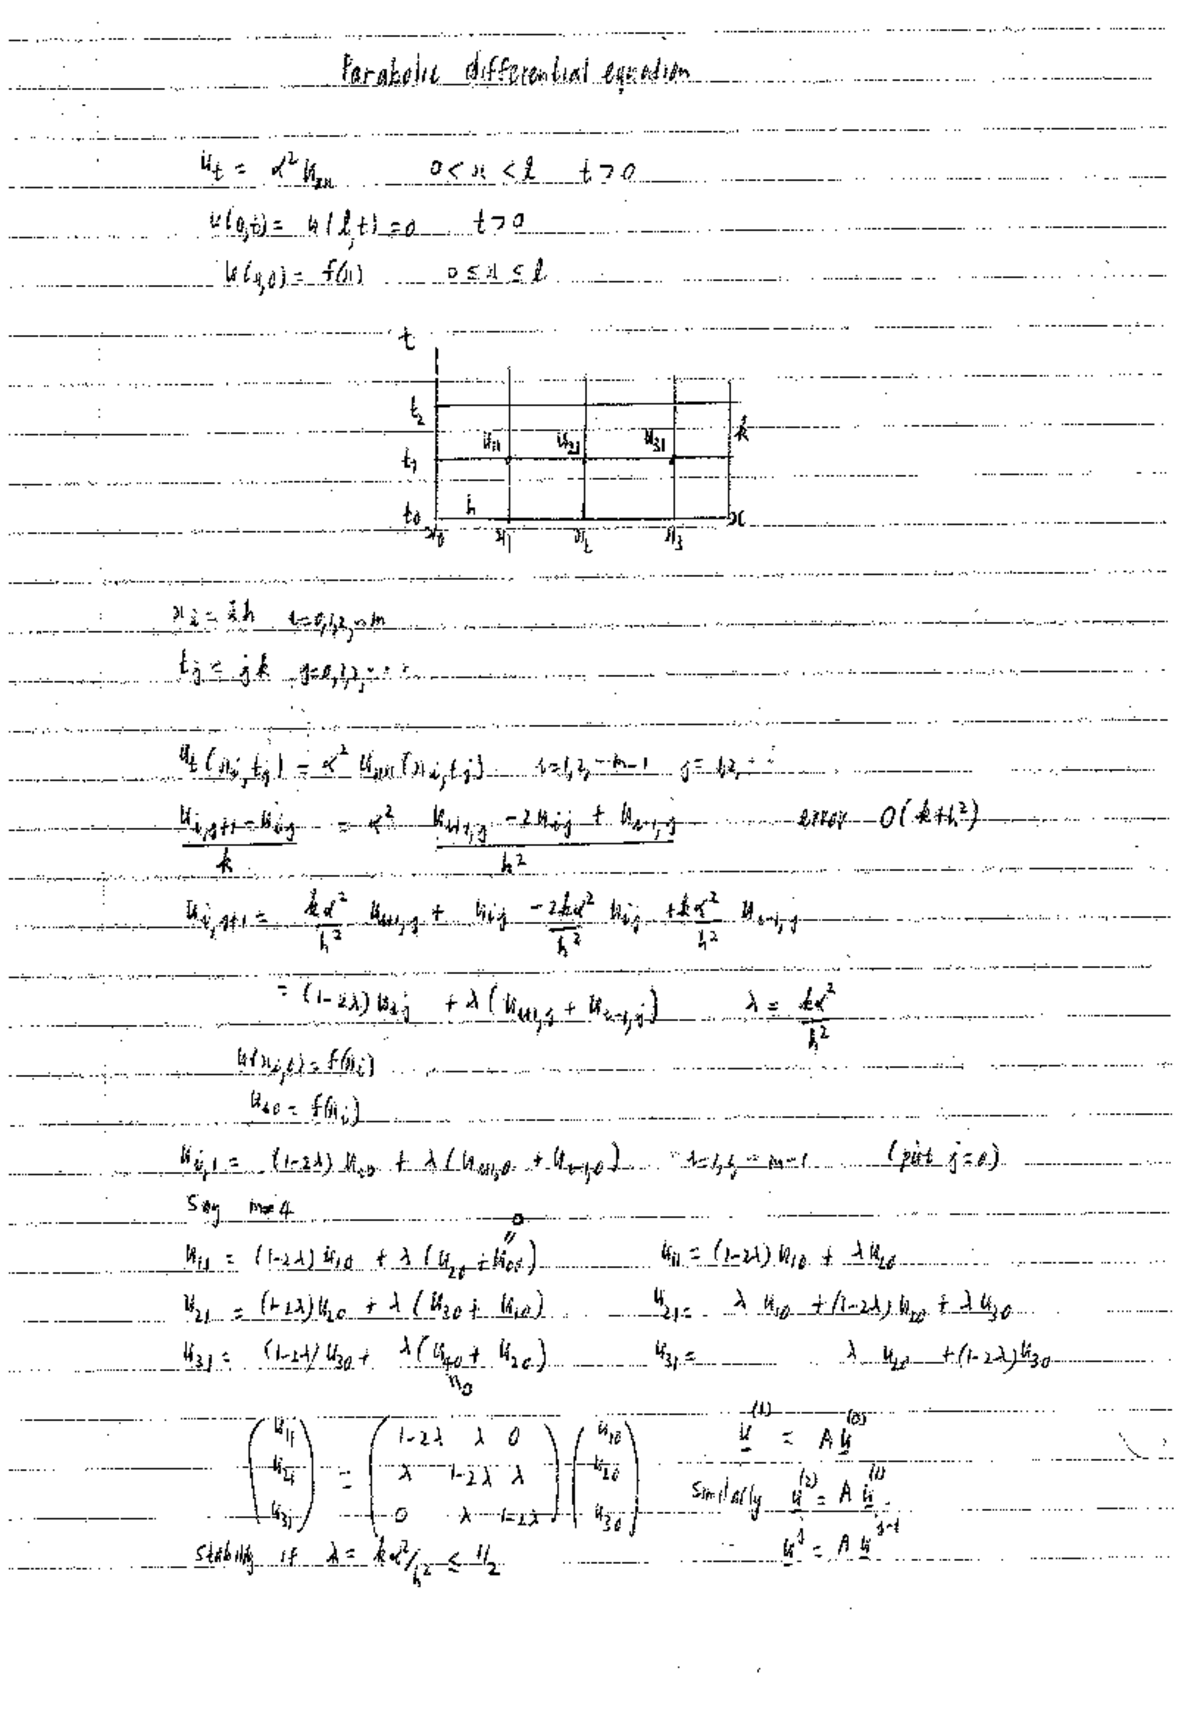 Parabolic differential equation
u_t = α² u_xx   0 < x < l   t > 0
u(0,t) = u(l,t) = 0   t > 0
u(x,0) = f(x)   0 ≤ x ≤ l
t
t₂
k
u₁₁ u₂₁ u₃₁
t₁
t₀ h x
x₀ x₁ x₂ x₃
x_i = ih   i=0,1,2,--m
t_j = jk   j=0,1,2,---
u_t(x_i,t_j) = α² u_xx(x_i,t_j)   i=1,2,--m-1   j=1,2,--
(u_{i,j+1} - u_{ij})/k = α² (u_{i+1,j} - 2u_{ij} + u_{i-1,j})/h²   error O(k+h²)
u_{i,j+1} = kα²/h² u_{i+1,j} + u_{ij} - 2kα²/h² u_{ij} + kα²/h² u_{i-1,j}
= (1-2λ)u_{ij} + λ(u_{i+1,j} + u_{i-1,j})   λ = kα²/h²
u(x_i,0) = f(x_i)
u_{i0} = f(x_i)
u_{i,1} = (1-2λ)u_{i0} + λ(u_{i+1,0} + u_{i-1,0})   i=1,2,--m-1   (put j=0)
Say m=4
0
"
u₁₁ = (1-2λ)u₁₀ + λ(u₂₀ + u₀₀)   u₁₁ = (1-2λ)u₁₀ + λu₂₀
u₂₁ = (1-2λ)u₂₀ + λ(u₃₀ + u₁₀)   u₂₁ = λu₁₀ + (1-2λ)u₂₀ + λu₃₀
u₃₁ = (1-2λ)u₃₀ + λ(u₄₀ + u₂₀)   u₃₁ = λu₂₀ + (1-2λ)u₃₀
"0
(u₁₁)   (1-2λ λ 0) (u₁₀)   u^(1) = A u^(0)
(u₂₁) = (λ 1-2λ λ) (u₂₀)   Similarly u^(2) = A u^(1)
(u₃₁)   (0 λ 1-2λ) (u₃₀)   u^j = A u^{j-1}
Stability if λ = kα²/h² ≤ 1/2